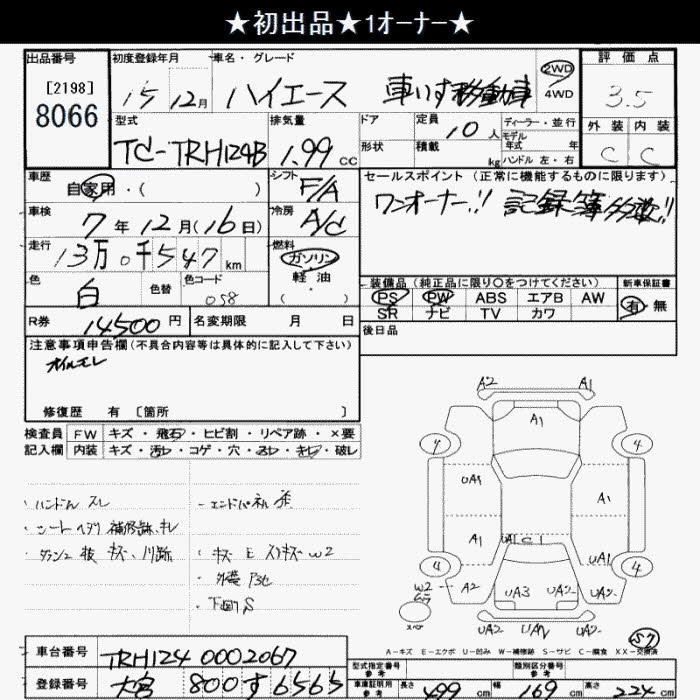 ★初出品★1オーナー★
出品番号
[2198]
8066
初度登録年月
15年12月
車名・グレード
ハイエース 車いす移動車
2WD
4WD
評価点
3.5
外装 内装
C C
型式
TC-TRH124B
排気量
1.99 cc
ドア
形状
定員
10人
積載
kg
ディーラー・並行
モデル
年式 年
ハンドル 左・右
車歴
自家用・( )
シフト
F/A
車検
7年12月(16日)
冷房
A/C
走行
13万0千547km
燃料
ガソリン
軽油
( ・ )
色
白
色替
色コード
058
R券
14500円
名変期限 月 日
セールスポイント(正常に機能するものに限ります)
ワンオーナー!! 記録簿多数!!
装備品(純正品に限り○をつけてください)
新車保証書
PS PW ABS エアB AW
SR ナビ TV カワ
有・無
後日品
注意事項申告欄(不具合内容等は具体的に記入して下さい)
オイルモレ
修復歴 有 [箇所 ]
検査員 FW キズ・飛石・ヒビ割・リペア跡・×要
記入欄 内装 キズ・汚レ・コゲ・穴・スレ・キレ・破レ
・ハンドル スレ
・シート ヘタリ 補修跡、キレ
・エンドパネル
・キズ E スリキズ W2
・下廻り S
A2 A1
A1
4 4
UA1
A1
A1
UA1 C1
UA1
4 4
W2
A2
UA3
UA2
UA2
スペア
UA2 UA2
A-キズ E-エクボ U-凹み W-補修跡 S-サビ C-腐食 XX-交換済
車台番号
TRH124 0002067
登録番号
大宮 800 す 6565
型式指定番号
参考
類別区分番号
参考
車庫証明用
参考
長さ 499 cm
幅 169 cm
高さ cm